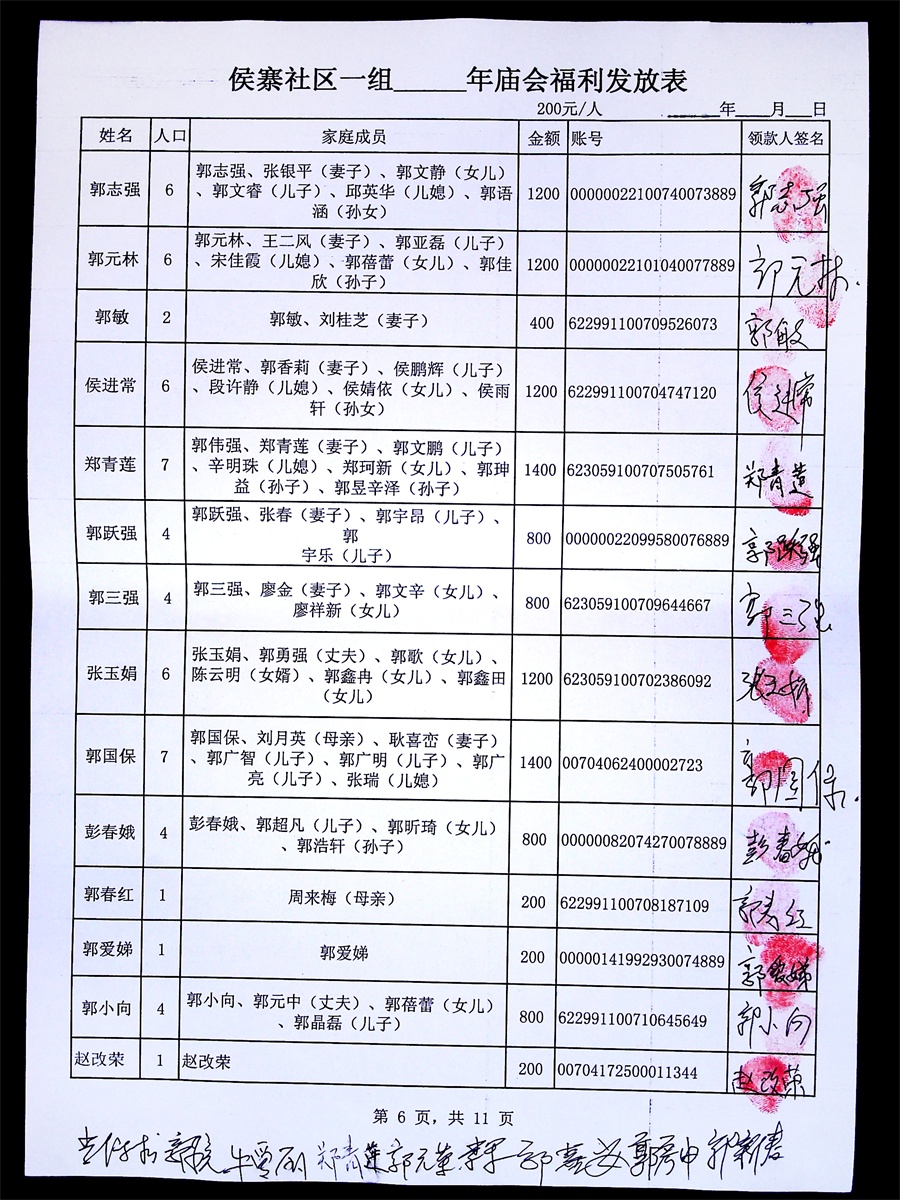 侯寨社区一组______年庙会福利发放表
200元/人 ______年____月___日
姓名 人口 家庭成员 金额 账号 领款人签名
郭志强 6 郭志强、张银平（妻子）、郭文静（女儿）
、郭文睿（儿子）、邱英华（儿媳）、郭语
涵（孙女） 1200 00000022100740073889 郭志强
郭元林 6 郭元林、王二风（妻子）、郭亚磊（儿子）
、宋佳霞（儿媳）、郭蓓蕾（女儿）、郭佳
欣（孙子） 1200 00000022101040077889 郭元林
郭敏 2 郭敏、刘桂芝（妻子） 400 622991100709526073 郭敏
侯进常 6 侯进常、郭香莉（妻子）、侯鹏辉（儿子）
、段许静（儿媳）、侯婧依（女儿）、侯雨
轩（孙女） 1200 622991100704747120 侯进常
郑青莲 7 郭伟强、郑青莲（妻子）、郭文鹏（儿子）
、辛明珠（儿媳）、郑珂新（女儿）、郭珅
益（孙子）、郭昱辛泽（孙子） 1400 623059100707505761 郑青莲
郭跃强 4 郭跃强、张春（妻子）、郭宇昂（儿子）、
郭
宇乐（儿子） 800 00000022099580076889 郭跃强
郭三强 4 郭三强、廖金（妻子）、郭文辛（女儿）、
廖祥新（女儿） 800 623059100709644667 郭三强
张玉娟 6 张玉娟、郭勇强（丈夫）、郭歌（女儿）、
陈云明（女婿）、郭鑫冉（女儿）、郭鑫田
（女儿） 1200 623059100702386092 张玉娟
郭国保 7 郭国保、刘月英（母亲）、耿喜峦（妻子）
、郭广智（儿子）、郭广明（儿子）、郭广
亮（儿子）、张瑞（儿媳） 1400 00704062400002723 郭国保
彭春娥 4 彭春娥、郭超凡（儿子）、郭昕琦（女儿）
、郭浩轩（孙子） 800 00000082074270078889 彭春娥
郭春红 1 周来梅（母亲） 200 622991100708187109 郭春红
郭爱娣 1 郭爱娣 200 00000141992930074889 郭爱娣
郭小向 4 郭小向、郭元中（丈夫）、郭蓓蕾（女儿）
、郭晶磊（儿子） 800 622991100710645649 郭小向
赵改荣 1 赵改荣 200 00704172500011344 赵改荣
第 6 页，共 11 页
郑青莲